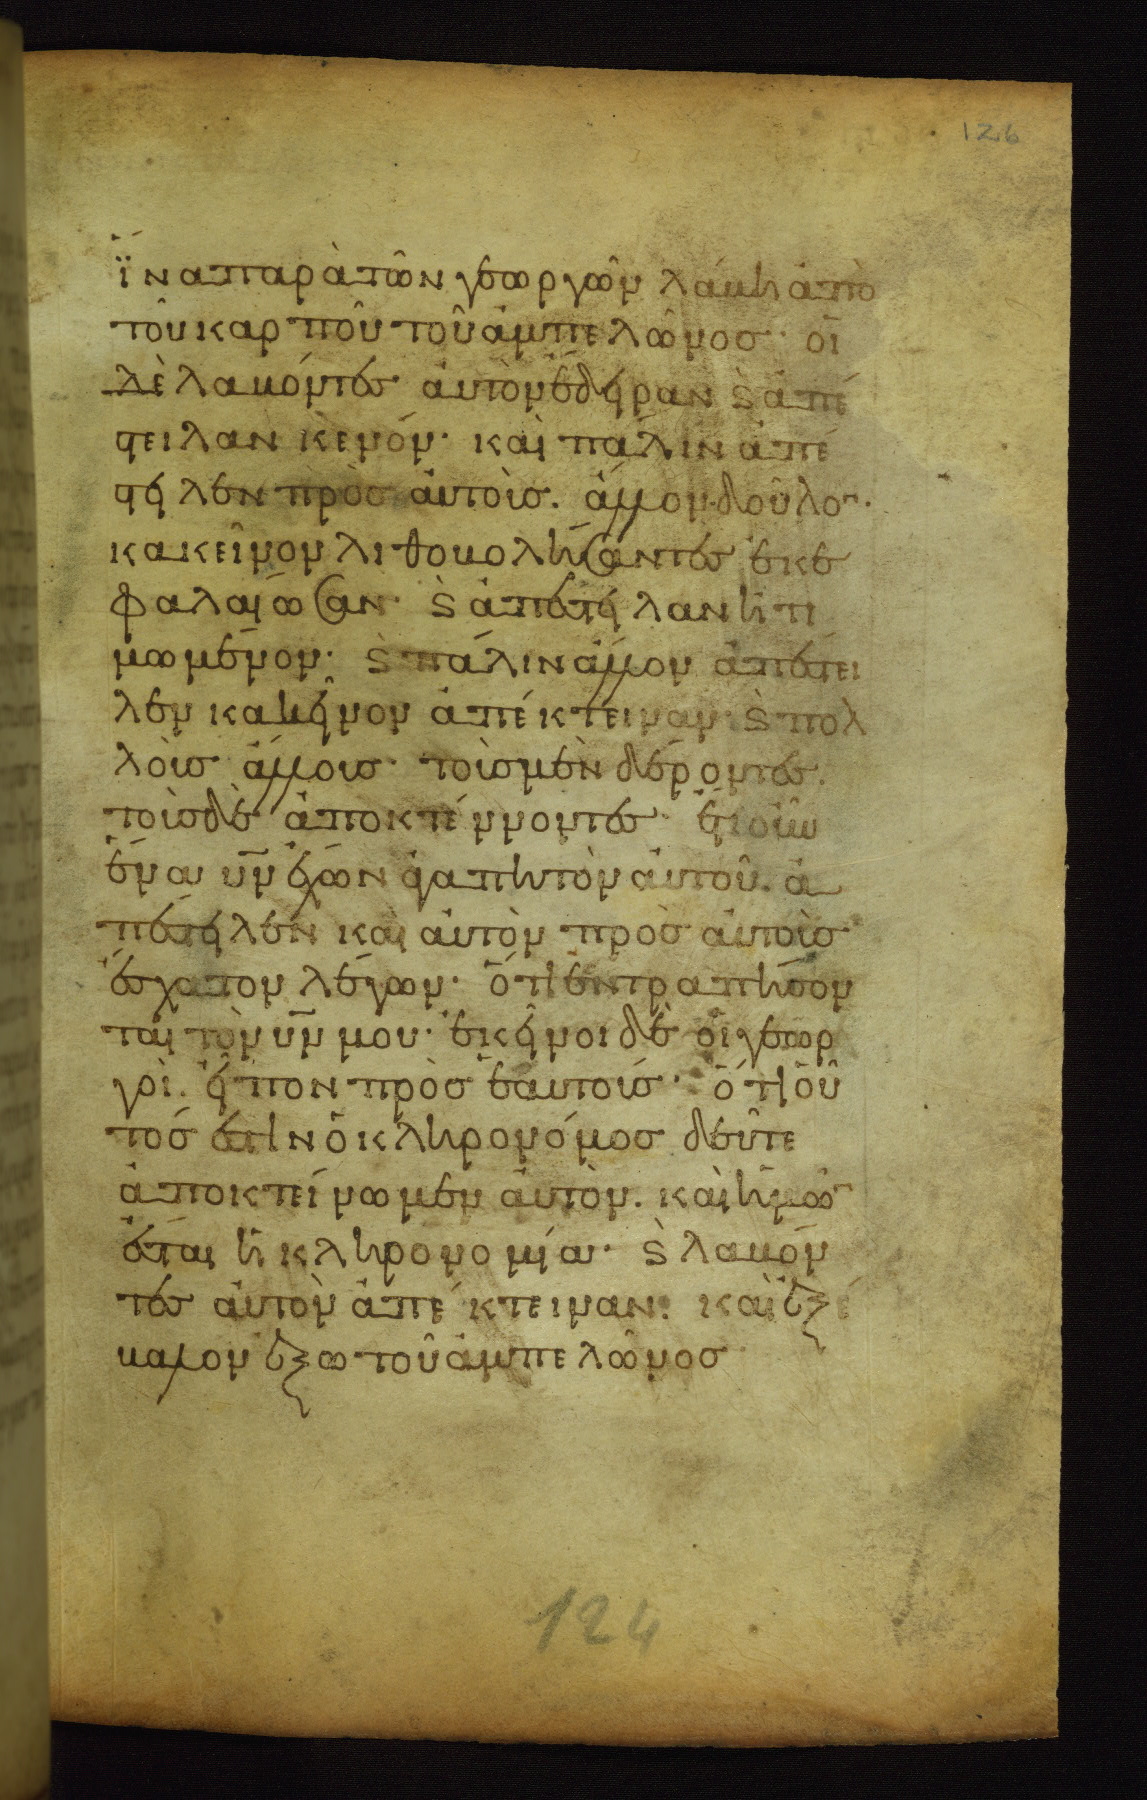 126
ἵνα παρὰ τῶν γεωργῶν λάβη ἀπὸ
τοῦ καρποῦ τοῦ ἀμπελῶνος· οἱ
δὲ λαβόντες αὐτὸν ἔδειραν ϛ ἀπέ
στειλαν κενόν· καὶ πάλιν ἀπέ
στειλεν πρὸς αὐτοὺς. ἄλλον δοῦλον·
κακεῖνον λιθοβολήσαντες ἐκε
φαλαίωσαν· ϛ ἀπέστειλαν ἠτι
μωμένον· ϛ πάλιν ἄλλον ἀπέστει
λεν κακεῖνον ἀπέκτειναν· ϛ πολ
λοὺς ἄλλους· τοὺς μὲν δέροντες.
τοὺς δὲ ἀποκτέννοντες· ἔτι οὖν
ἕνα υν ἔχων ἀγαπητὸν αὐτοῦ. ἀ
πέστειλεν καὶ αὐτὸν πρὸς αὐτοὺς
ἔσχατον λέγων· ὅτι ἐντραπήσον
ται τὸν υν μου· ἐκεῖνοι δὲ οἱ γεωρ
γοὶ. εἶπον πρὸς ἑαυτούς· ὅτι οὗ
τός ἐστιν ὁ κληρονόμος δεῦτε
ἀποκτείνωμεν αὐτὸν. καὶ ἡμῶν
ἔσται ἡ κληρονομία· ϛ λαβόν
τες αὐτὸν ἀπέκτειναν· καὶ ἐξέ
βαλον ἔξω τοῦ ἀμπελῶνος
124